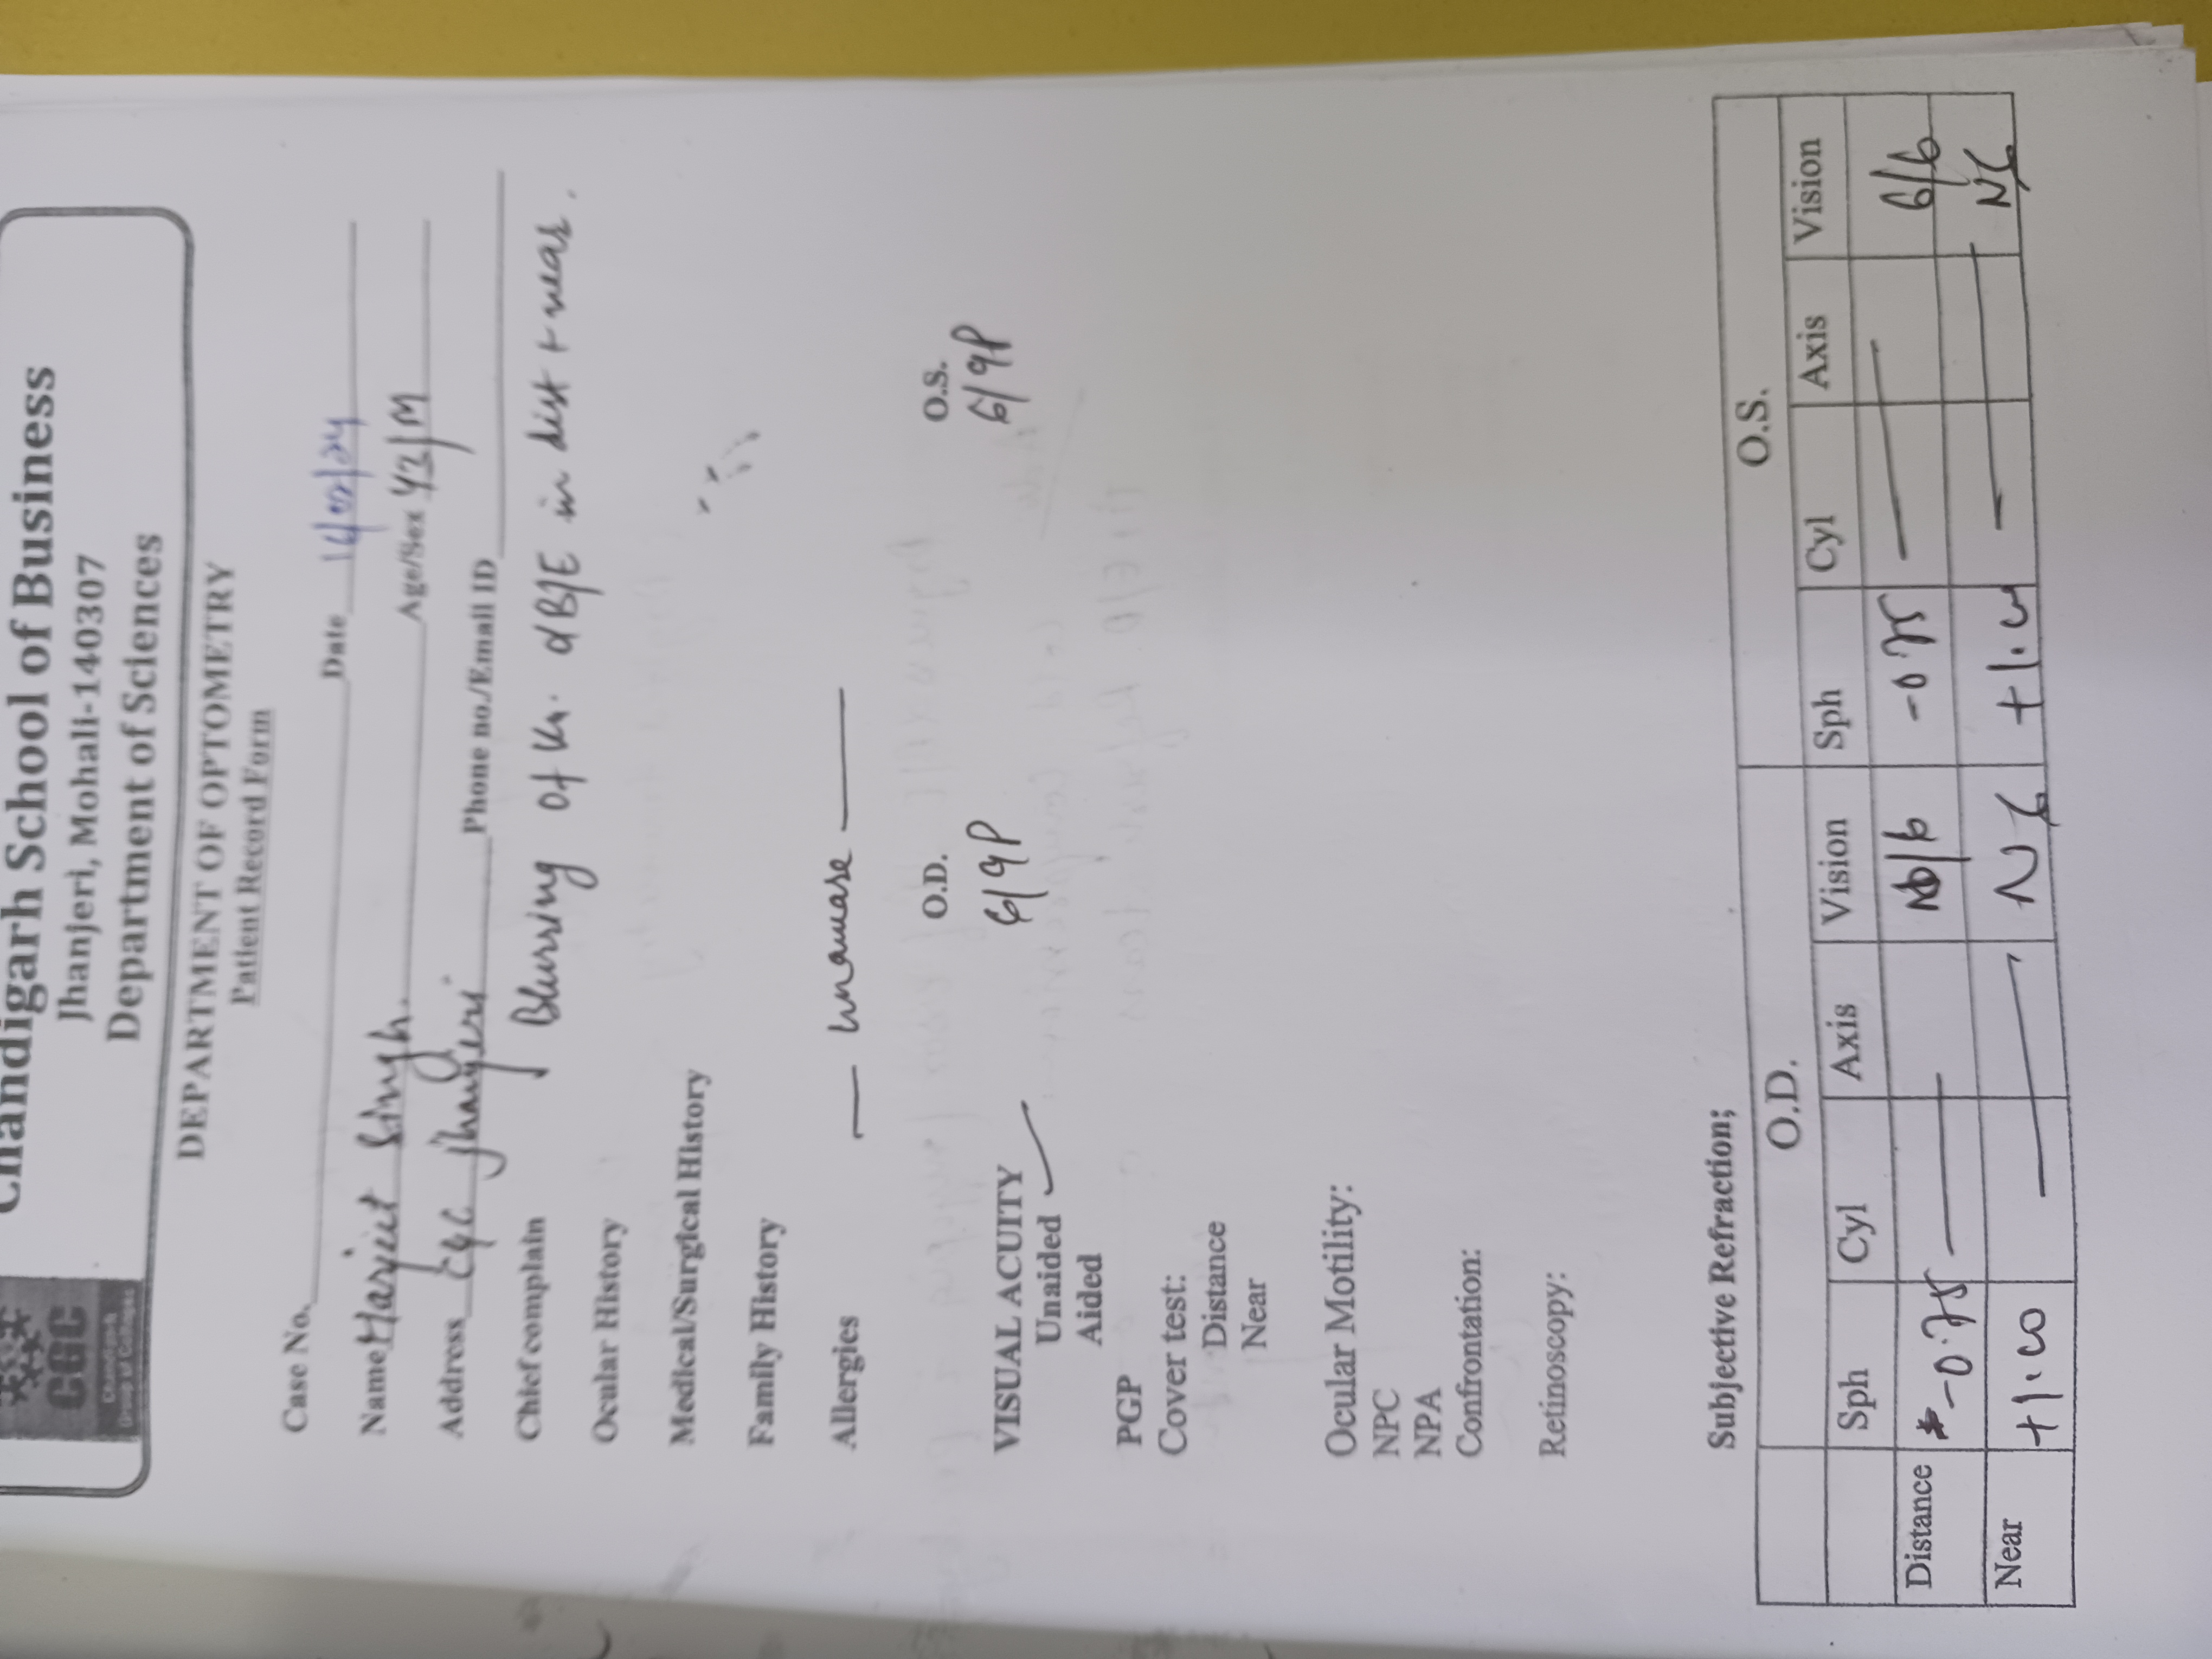 Chandigarh School of Business
CGC
Jhanjeri, Mohali-140307
Chandigarh
Group of Colleges
Department of Sciences
DEPARTMENT OF OPTOMETRY
Patient Record Form
Case No.
Date /02/24
Name Harjeet Singh.
Age/Sex 42/M
Address CGC Jhanjeri Phone no./Email ID
Chief complain Blurring of Vn. of B/E in dist + near.
Ocular History
Medical/Surgical History
Family History
Allergies — Unaware —
O.D. O.S.
VISUAL ACUITY 6/9P 6/9P
Unaided ✓
Aided
PGP
Cover test:
Distance
Near
Ocular Motility:
NPC
NPA
Confrontation:
Retinoscopy:
Subjective Refraction;
O.D. O.S.
Sph Cyl Axis Vision Sph Cyl Axis Vision
Distance -0.75 — 6/6 -0.75 — 6/6
Near +1.00 — N6 +1.00 — N6